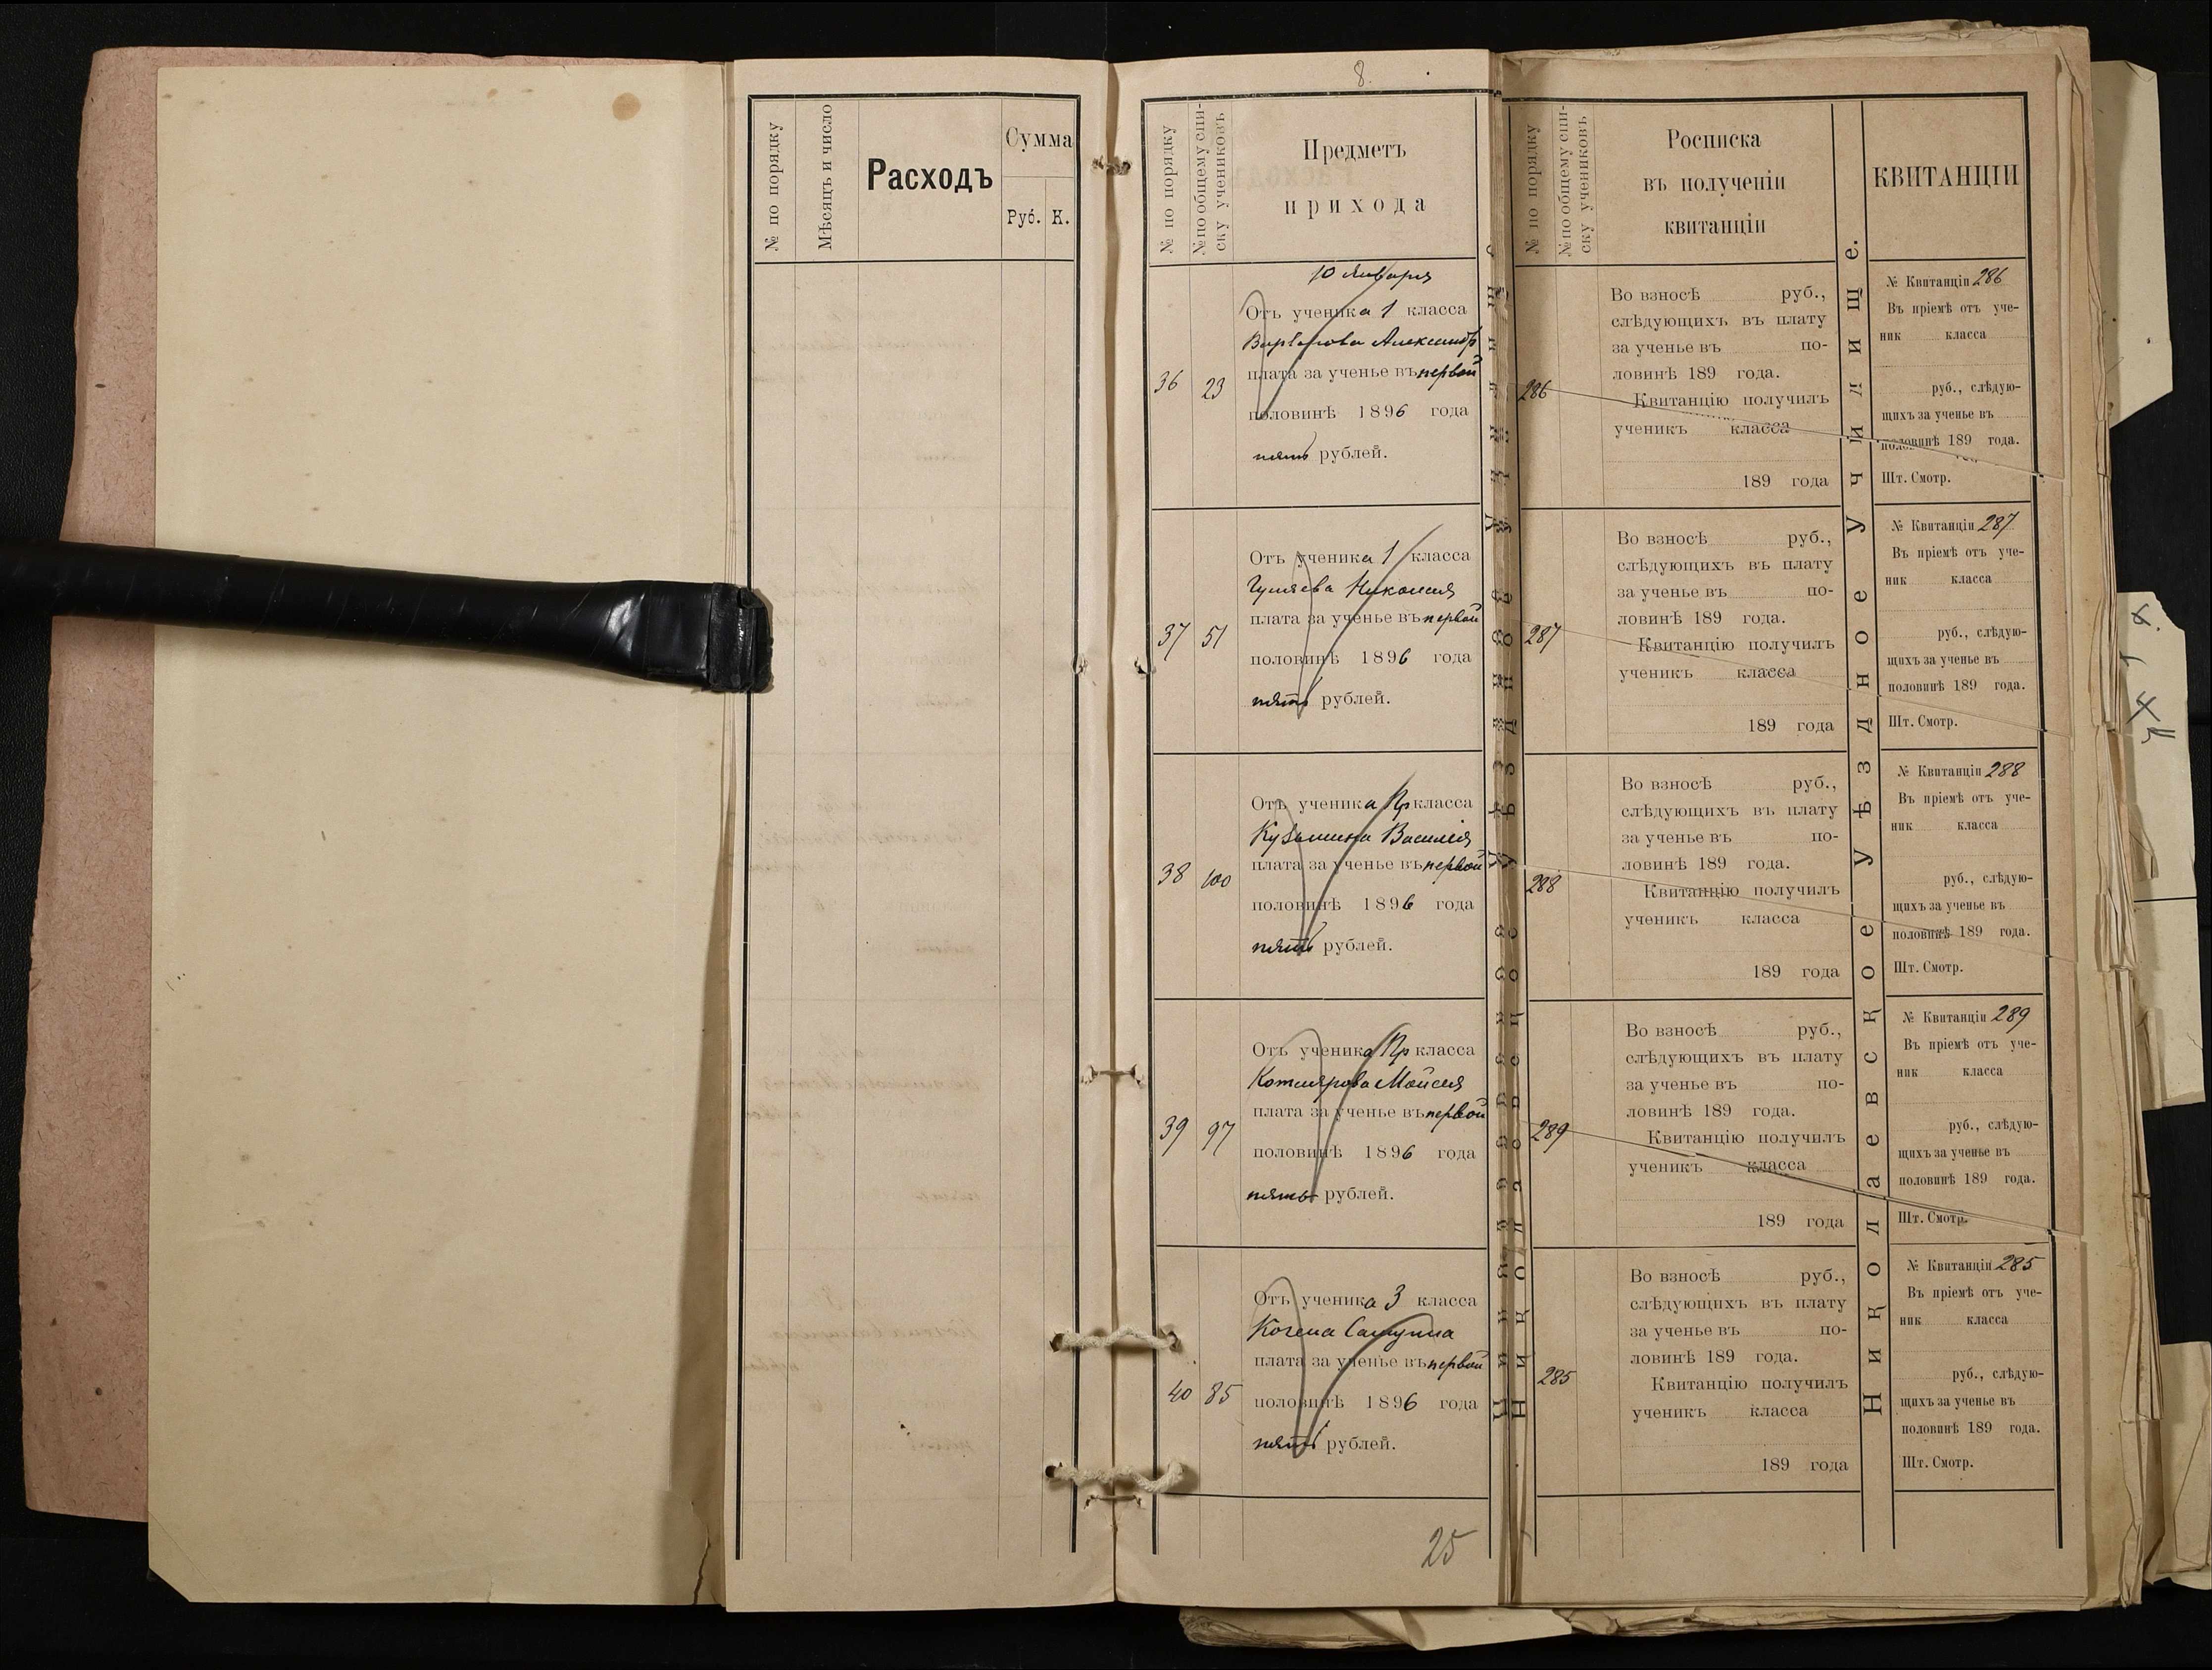 № по порядку
Мѣсяцъ и число
Расходъ
Сумма
Руб. К.
8.
№ по порядку
№ по общему спи-
ску учениковъ
Предметъ
прихода
10 января
36 23
Отъ ученика 1 класса
Александр
плата за ученье въ первой
половинѣ 1896 года
пять рублей.
37 51
Отъ ученика 1 класса
Гуляева Николая
плата за ученье въ первой
половинѣ 1896 года
пять рублей.
38 100
Отъ ученика Пр класса
Кузьмина Василія
плата за ученье въ первой
половинѣ 1896 года
пять рублей.
39 97
Отъ ученика Пр класса
Котлярова Мойсея
плата за ученье въ первой
половинѣ 1896 года
пять рублей.
40 85
Отъ ученика 3 класса
Когена Самуила
плата за ученье въ первой
половинѣ 1896 года
пять рублей.
25
№ по порядку
№ по общему спи-
ску учениковъ
Росписка
въ полученіи
квитанціи
286
Во взносѣ руб.,
слѣдующихъ въ плату
за ученье въ по-
ловинѣ 189 года.
Квитанцію получилъ
ученикъ класса
189 года
287
Во взносѣ руб.,
слѣдующихъ въ плату
за ученье въ по-
ловинѣ 189 года.
Квитанцію получилъ
ученикъ класса
189 года
288
Во взносѣ руб.,
слѣдующихъ въ плату
за ученье въ по-
ловинѣ 189 года.
Квитанцію получилъ
ученикъ класса
189 года
289
Во взносѣ руб.,
слѣдующихъ въ плату
за ученье въ по-
ловинѣ 189 года.
Квитанцію получилъ
ученикъ класса
189 года
285
Во взносѣ руб.,
слѣдующихъ въ плату
за ученье въ по-
ловинѣ 189 года.
Квитанцію получилъ
ученикъ класса
189 года
Николаевское Уѣздное Училище.
КВИТАНЦІИ
№ Квитанціи 286
Въ пріемѣ отъ уче-
ник класса
руб., слѣдую-
щихъ за ученье въ
половинѣ 189 года.
Шт. Смотр.
№ Квитанціи 287
Въ пріемѣ отъ уче-
ник класса
руб., слѣдую-
щихъ за ученье въ
половинѣ 189 года.
Шт. Смотр.
№ Квитанціи 288
Въ пріемѣ отъ уче-
ник класса
руб., слѣдую-
щихъ за ученье въ
половинѣ 189 года.
Шт. Смотр.
№ Квитанціи 289
Въ пріемѣ отъ уче-
ник класса
руб., слѣдую-
щихъ за ученье въ
половинѣ 189 года.
Шт. Смотр.
№ Квитанціи 285
Въ пріемѣ отъ уче-
ник класса
руб., слѣдую-
щихъ за ученье въ
половинѣ 189 года.
Шт. Смотр.